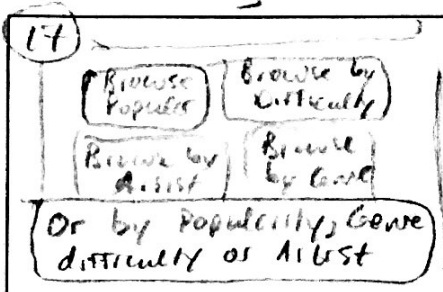 17
Browse Popular
Browse by Difficulty
Browse by Artist
Browse by Genre
Or by Popularity, Genre
difficulty or Artist